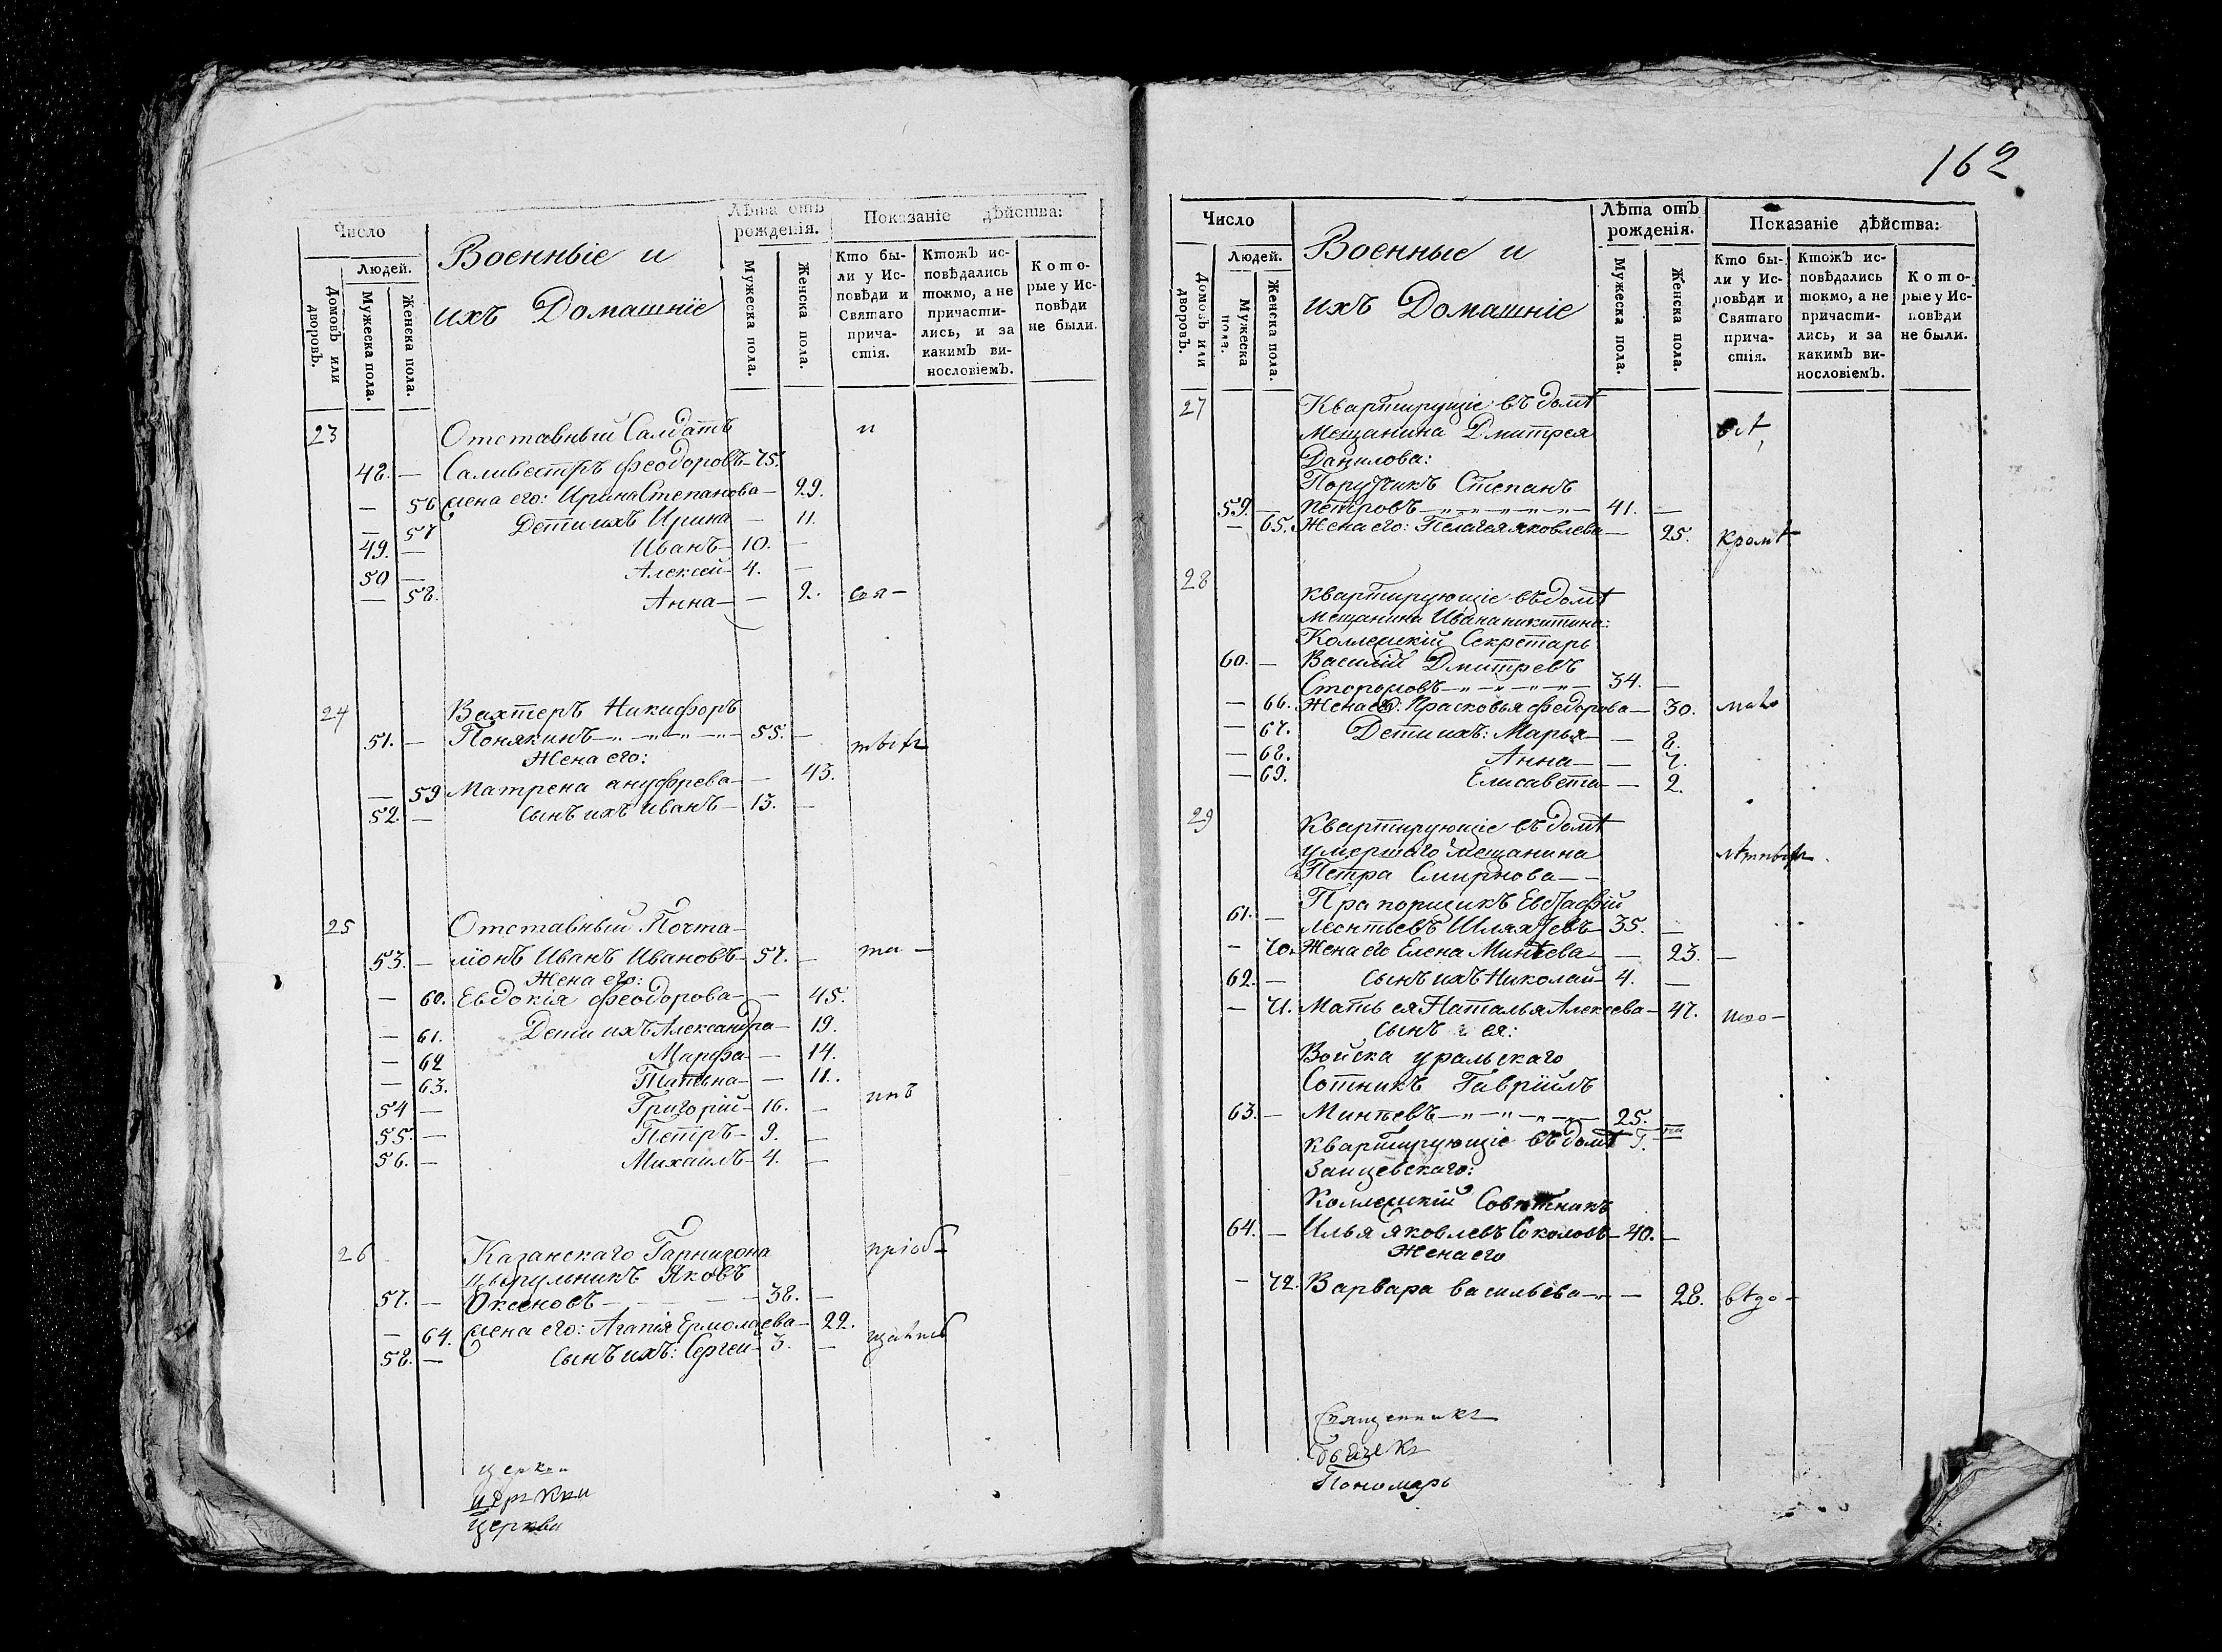 Число
Людей.
Домовъ или дворовъ.
Мужеска пола.
Женска пола.
Военные и
ихъ Домашніе
Лѣта отъ рожденія.
Мужеска пола.
Женска пола.
Показаніе дѣйства:
Кто были у Исповѣди и Святаго причастія.
Ктожъ исповѣдались токмо, а не причастились, и за какимъ винословіемъ.
Которые у Исповѣди не были.
23 Отставный Салдатъ и
48. — Саливестръ Феодоровъ — 75.
— 56 Жена его: Ирина Степанова —
— 57 Дети ихъ Ирина — 11.
49. — Иванъ — 10. —
50 — Алексей — 4. —
— 58. Анна — — 2.
24 Вахтеръ Никифоръ
51. — Понякинъ — 55. —
Жена его:
— 59 Матрена ануфрева — — 43.
52. — Сынъ ихъ Иванъ — 13. —
25 Отставный Почта-
53. — ліонъ Иванъ Ивановъ — 57. —
Жена его:
— 60. Евдокія Феодорова — — 45.
— 61. Дети ихъ Александра — 19.
— 62 Марфа — — 14.
— 63. Татьяна — — 11.
54 — Григорій — 16. —
55. — Петръ — 9. —
56. — Михаилъ — 4. —
26 Казанскаго Гарнизона пріоб-
цырульникъ Яковъ
57. — Оксеновъ — 38. —
— 64. Жена его: Агапія Ермолаева — 22.
58. — Сынъ ихъ: Сергей — 3. —
церкви
церкви
церкви
162
Число
Людей.
Домовъ или дворовъ.
Мужеска пола.
Женска пола.
Военные и
ихъ Домашніе
Лѣта отъ рожденія.
Мужеска пола.
Женска пола.
Показаніе дѣйства:
Кто были у Исповѣди и Святаго причастія.
Ктожъ исповѣдались токмо, а не причастились, и за какимъ винословіемъ.
Которые у Исповѣди не были.
27 Квартирущіе въ домѣ
Мещанина Дмитрея
Данилова:
Поручикъ Степанъ
59. — Петровъ — 41. —
— 65. Жена его: Пелагея яковлева — 25. кромѣ
28 квартирующіе въ домѣ
мещанина Ивана никитина:
Коллешкій Секретарь
60. — Василій Дмитревъ
34. —
— 66. Жена его: Прасковья федорова — 30. мало
— 67. Дети ихъ: Марья — — 8.
— 68. Анна — — 7.
— 69. Елисавета — — 2.
29 Квартирующіе въ домѣ
умершаго мещанина лѣтныхъ
Петра Смирнова —
Прапорщикъ
61. — леонтьевъ 35. —
— 70. Жена его Елена Минѣева — — 23. —
62. — Сынъ ихъ Николай — 4. —
— 71. Мать ея Наталья Алексева — 47.
Сынъ ея:
Войска уральскаго
Сотникъ Гавріилъ
63. — Минѣевъ — 25. —
квартирующіе въ домѣ Г.
Заицевскаго:
Коллешкій Совѣтникъ
64. — Илья яковлевъ Соколовъ — 40. —
Жена его
— 72. Варвара васильева — — 28.
Священникъ
дьячекъ
Пономарь